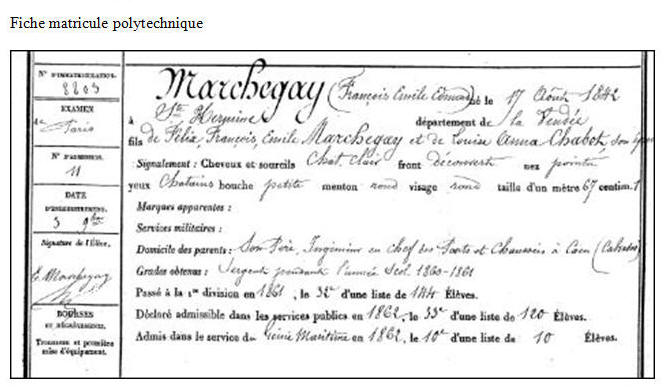 Fiche matricule polytechnique
N° D'IMMATRICULATION.
EXAMEN
Paris
N° D'ADMISSION.
11
DATE
D'ENREGISTREMENT.
3 9bre
Signature de l'Élève.
E. Marchegay
BOURSES
ET DÉGRÈVEMENTS.
Trousseau et première
mise d'équipement.
Marchegay (François Emile Edmond) né le 17 Août 1842
à Ste Hermine département de la Vendée
fils de Félix, François, Emile Marchegay et de Louise Anna Chabot, son
Signalement : Cheveux et sourcils Chat. clair front découvert nez pointu
yeux Chatains bouche petite menton rond visage rond taille d'un mètre 67 centim.
Marques apparentes :
Services militaires :
Domicile des parents : Son Père, Ingénieur en chef des Ponts et Chaussées à Caen (Calvados)
Grades obtenus : Sergent pendant l'année Scol. 1860-1861
Passé à la 1re division en 1861, le 32e d'une liste de 144 Élèves.
Déclaré admissible dans les services publics en 1862, le 35e d'une liste de 120 Élèves.
Admis dans le service du Génie Maritime en 1862, le 10e d'une liste de 10 Élèves.